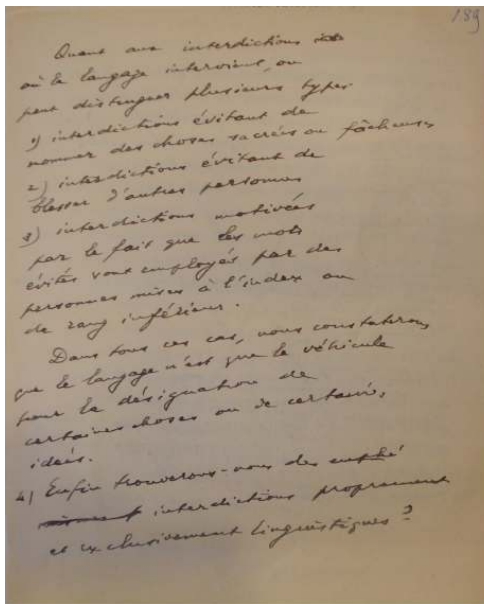 189
Quant aux interdictions
où le langage intervient, on
peut distinguer plusieurs types
1) interdictions évitant de
nommer des choses sacrées ou fâcheuses
2) interdictions évitant de
blesser d'autres personnes
3) interdictions motivées
par le fait que les mots
évités sont employés par des
personnes mises à l'index ou
de rang inférieur.
Dans tous ces cas, nous constaterons
que le langage n'est que le véhicule
pour la désignation de
certaines choses ou de certaines
idées.
4) Enfin trouverons-nous des
interdictions proprement
et exclusivement linguistiques ?